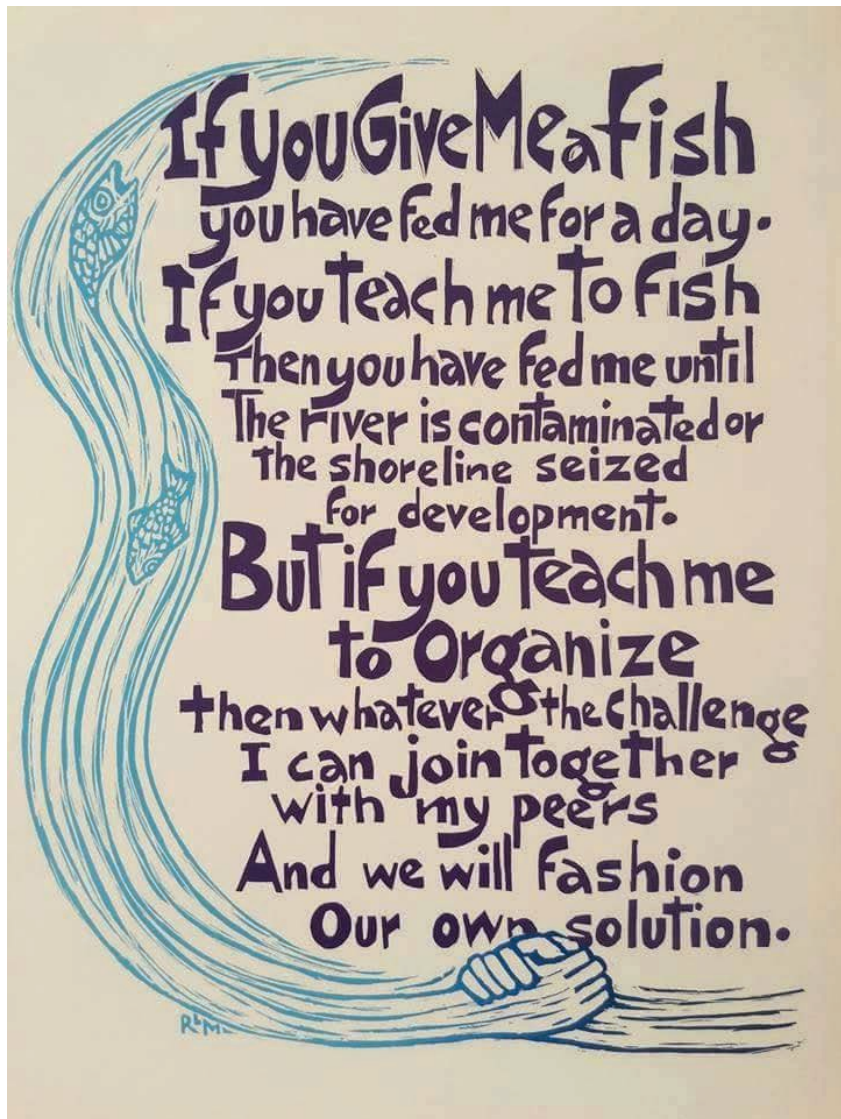 If you Give Me a Fish
you have fed me for a day.
If you Teach me To Fish
Then you have fed me until
The river is contaminated or
The shoreline seized
for development.
But if you Teach me
to Organize
then whatever the challenge
I can join Together
with my peers
And we will fashion
Our own solution.
RLM